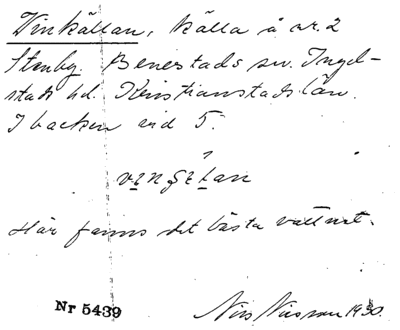 Vinkällan, källa å nr. 2
Stenby. Benestads sn. Ingel-
stads hd. Kristianstads län.
I backen vid 5.
Här fanns det bästa vattnet.
Nr 5439
Nils Nilsson 1930.